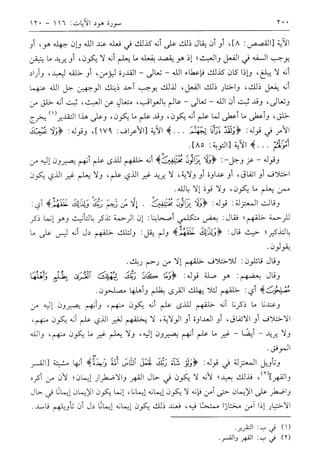 ٢٠٠ سورة هود الآيات: ١١٦ - ١٢٠
الآية [القصص: ٨]، أو أن يقال ذلك على أنه كذلك في فعله عند الله وإن جهله هو، أو
يوجب السفه في الفعل والعبث؛ إذ هو يقصد بفعله ما يعلم أنه لا يكون، أو يريد ما يتيقن
أنه لا يبلغ، وإذا كان كذلك فإعطاء الله - تعالى - القدرة ليؤمن، أو خلقه ليعبد، وأراد
أنه يفعل ذلك، واختار ذلك الفعل، لذلك يوجب أحد ذينك الوجهين جل الله عنهما
وتعالى، وقد ثبت أن الله - تعالى - عالم بالعواقب، متعال عن العبث، ثبت أنه خلق من
خلق، وأعطى ما أعطى لما علم أنه يكون، وقد علم ما يكون، وعلى هذا التقدير(١) يخرج
الأمر في قوله: ﴿وَلَقَدْ ذَرَأْنَا لِجَهَنَّمَ ...﴾ الآية [الأعراف: ١٧٩]، وقوله: ﴿وَلَا تُعْجِبْكَ
أَمْوَٰلُهُمْ ...﴾ الآية [التوبة: ٨٥].
وقوله - عز وجل -: ﴿وَلَا يَزَالُونَ مُخْتَلِفِينَ﴾ أنه خلقهم للذي علم أنهم يصيرون إليه من
اختلاف أو اتفاق، أو عداوة أو ولاية، لا يريد غير الذي علم، ولا يعلم غير الذي يكون
ممن يعلم ما يكون، ولا قوة إلا بالله.
وقالت المعتزلة: قوله: ﴿وَلَا يَزَالُونَ مُخْتَلِفِينَ . إِلَّا مَن رَّحِمَ رَبُّكَ وَلِذَٰلِكَ خَلَقَهُمْ﴾ أي:
للرحمة خلقهم؛ فقال: بعض متكلمي أصحابنا: إن الرحمة تذكر بالتأنيث وهو إنما ذكر
بالتذكير؛ حيث قال: ﴿وَلِذَٰلِكَ خَلَقَهُمْ﴾ ولم يقل: ولتلك خلقهم دل أنه ليس على ما
يقولون.
وقال قائلون: للاختلاف خلقهم إلا من رحم ربك.
وقال بعضهم: هو صلة قوله: ﴿وَمَا كَانَ رَبُّكَ لِيُهْلِكَ الْقُرَىٰ بِظُلْمٍ وَأَهْلُهَا
مُصْلِحُونَ﴾ أي: خلقهم لئلا يهلك القرى بظلم وأهلها مصلحون.
وعندنا ما ذكرنا أنه خلقهم للذي علم أنه يكون منهم، وأنهم يصيرون إليه من
الاختلاف أو الاتفاق، أو العداوة أو الولاية، لا يخلقهم لغير الذي علم أنه يكون منهم،
ولا يريد - أيضًا - غير ما علم أنهم يصيرون إليه، ولا يعلم غير ما يكون منهم، والله
الموفق.
وتأويل المعتزلة في قوله: ﴿وَلَوْ شَاءَ رَبُّكَ لَجَعَلَ النَّاسَ أُمَّةً وَٰحِدَةً﴾ أنها مشيئة [القسر
والقهر](٢)، فذلك بعيد؛ لأنه لا يكون في حال القهر والاضطرار إيمان؛ لأن من أكره
واضطر على الإيمان حتى آمن فإنه لا يكون إيمانه إيمانا، إنما يكون الإيمان إيمانًا في حال
الاختيار إذا آمن مختارًا ممتحنًا فيه، فعند ذلك يكون إيمانه إيمانًا دل أن تأويلهم فاسد.
(١) في ب: التقرير.
(٢) في ب: القهر والقسر.